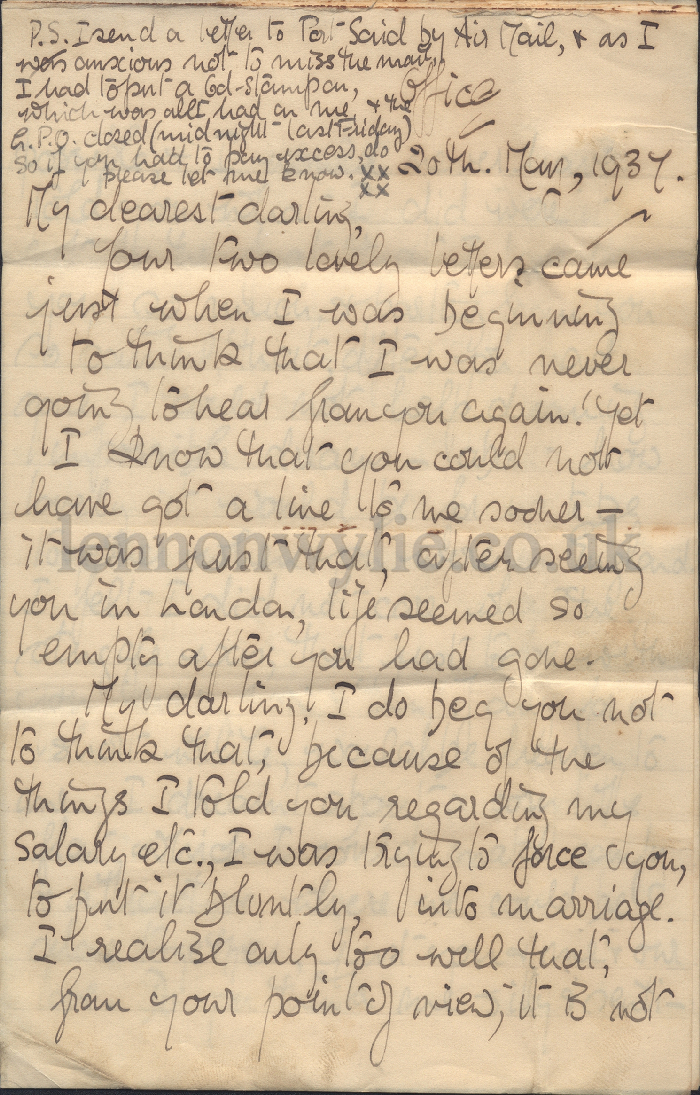 P.S. I send a letter to Port Said by Air Mail, & as I
was anxious not to miss the mail,
I had to put a 6d-stamp on,
which was all I had on me, & the
G.P.O. closed (midnight last Friday)
So if you had to pay excess, do
please let me know. xx
xx
Office
20th. May, 1937.
My dearest darling,
Your two lovely letters came
just when I was beginning
to think that I was never
going to hear from you again! Yet
I know that you could not
have got a line to me sooner —
it was just that, after seeing
you in London, life seemed so
empty after you had gone.
My darling, I do beg you not
to think that, because of the
things I told you regarding my
salary etc., I was trying to force you,
to put it bluntly, into marriage.
I realise only too well that,
from your point of view, it is not
lennonwylie.co.uk